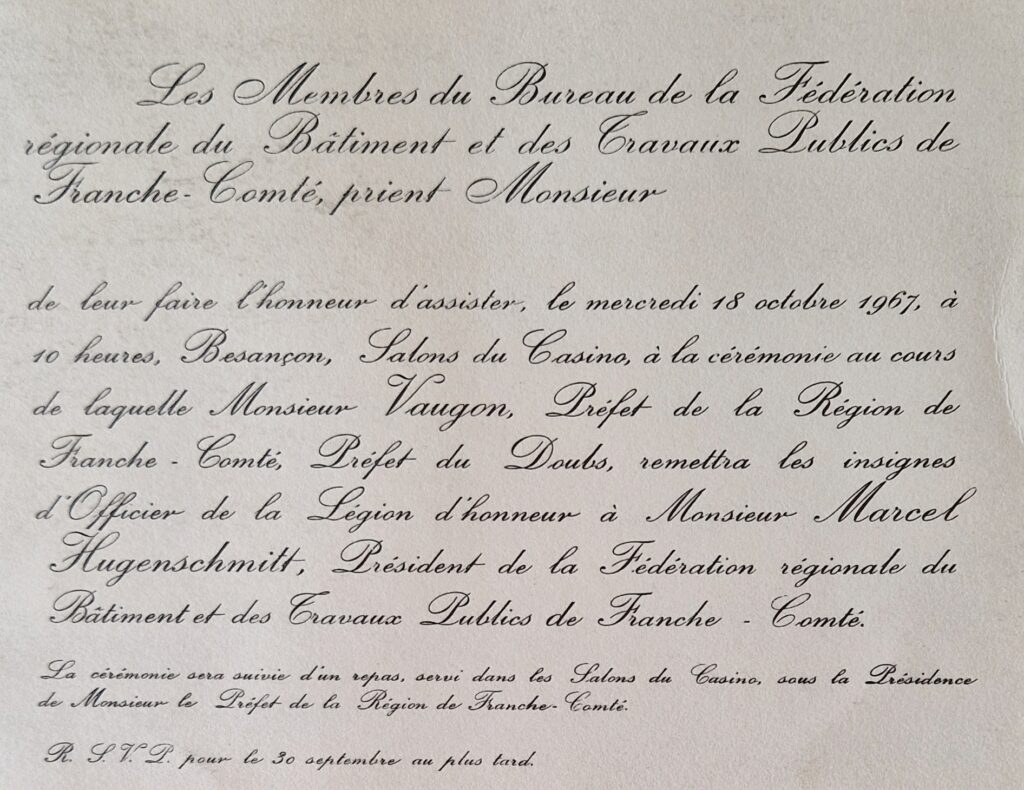 Les Membres du Bureau de la Fédération
régionale du Bâtiment et des Travaux Publics de
Franche-Comté, prient Monsieur
de leur faire l'honneur d'assister, le mercredi 18 octobre 1967, à
10 heures, Besançon, Salons du Casino, à la cérémonie au cours
de laquelle Monsieur Vaugon, Préfet de la Région de
Franche - Comté, Préfet du Doubs, remettra les insignes
d'Officier de la Légion d'honneur à Monsieur Marcel
Hugenschmitt, Président de la Fédération régionale du
Bâtiment et des Travaux Publics de Franche - Comté.
La cérémonie sera suivie d'un repas, servi dans les Salons du Casino, sous la Présidence
de Monsieur le Préfet de la Région de Franche-Comté.
R. S. V. P. pour le 30 septembre au plus tard.